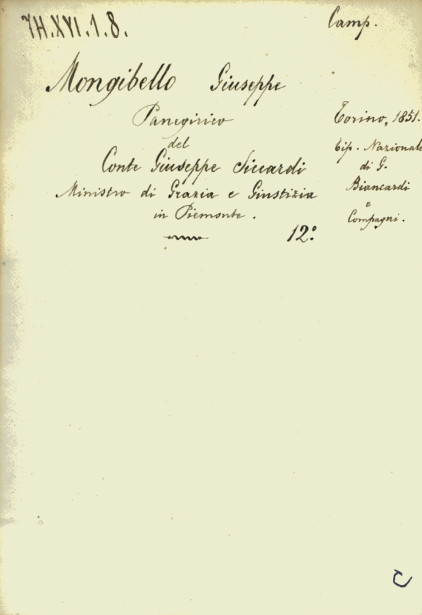 7H.XVI.1.8.
Camp.
Mongibello Giuseppe
Panegirico
del
Conte Giuseppe Siccardi
Ministro di Grazia e Giustizia
in Piemonte.
12º
Torino, 1851.
Tip. Nazionale
di G.
Biancardi
e
Compagni.
C